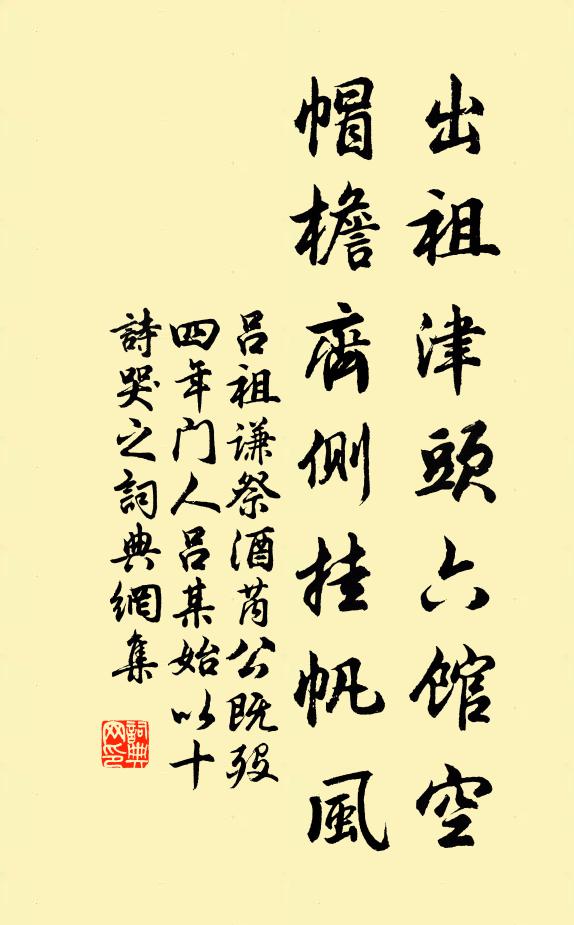 出祖津頭六館空
帽檐齊側挂帆風
吕祖谦祭酒芮公既殁
四年门人吕某始以十
詩哭之詞典網集
詞典
网印